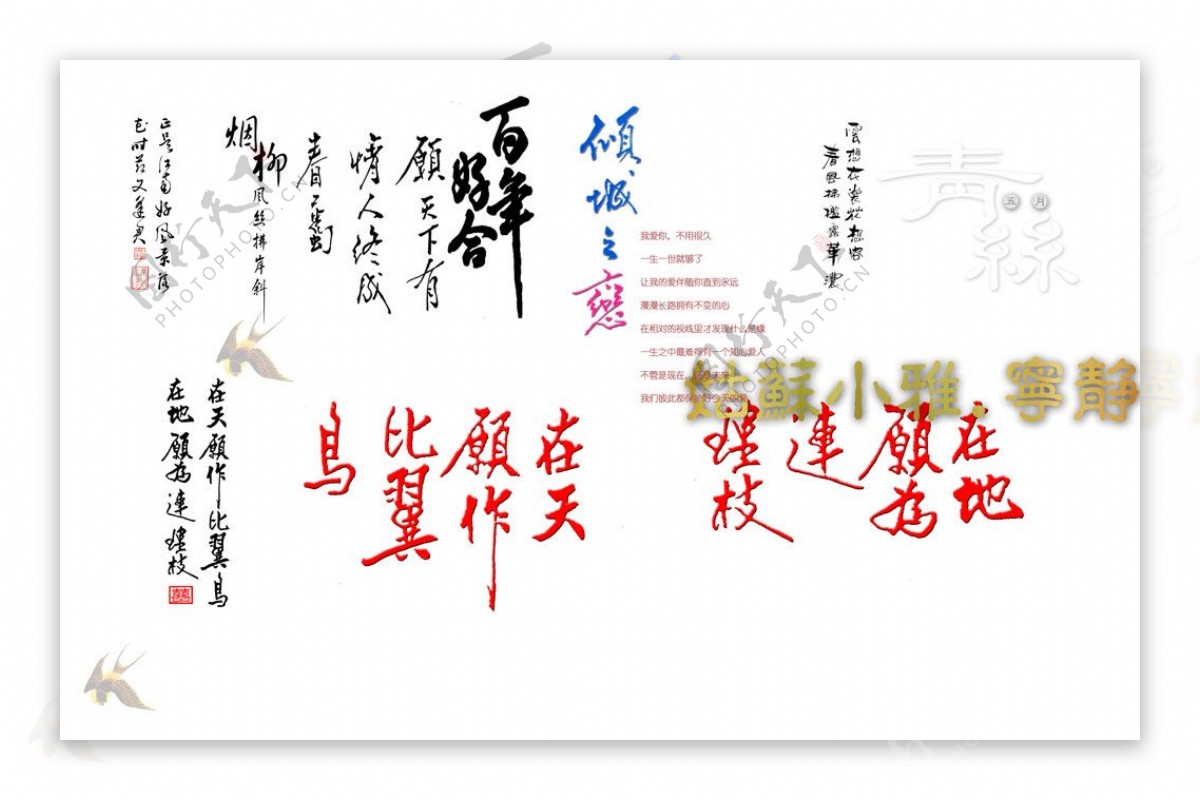 正是江南好風景落
花时节又逢君
烟
柳
風丝拂岸斜
百年
好合
願天下有
情人终成
眷属
倾城之戀
我爱你，不用很久
一生一世就够了
让我的爱伴随你直到永远
漫漫长路拥有不变的心
在相对的视线里才发现什么是缘
一生之中最难得有一个知心爱人
不管是现在，
我们彼此都保护好今天的爱
雲想衣裳花想容
春風拂檻露華濃
青絲
五月
姑蘇小雅.寧靜
在天願作比翼鸟
在地願為連理枝
在天
願作
比翼
鸟
在地
願為
連
理枝
图行天下
PHOTO.CN